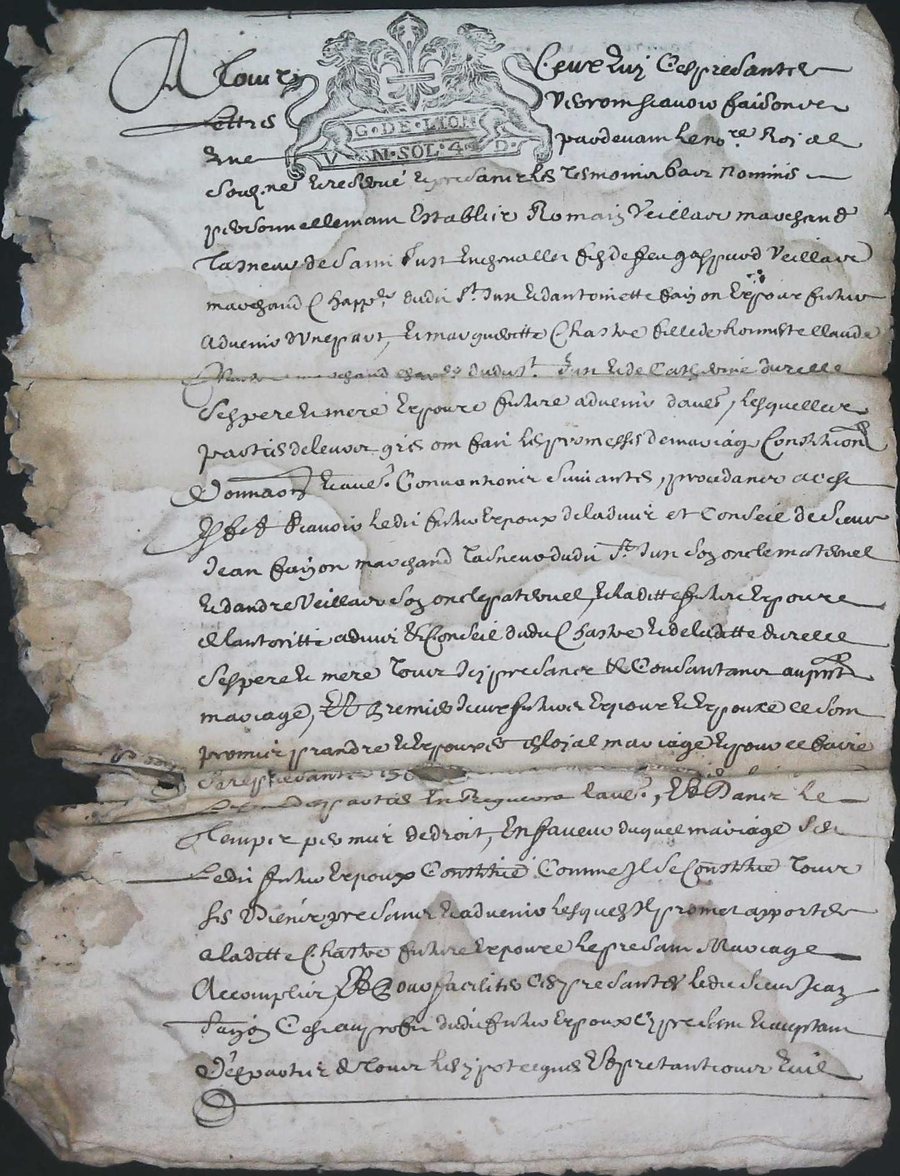 A Tous Ceux quj Ces presantes
G·DE·LION
V N·SOL·4 D·
Lettres Verront scavoir faisons
que pardevant le no.re Roial
soubz.ne reservé et presants les tesmoins bas nommés
personnellement establis Romain Veillas marchand
Tasneur de saint Just en chevallet filz de feu gaspard Veillas
marchand Chapp.r dudit S.t Just et dantoinette faizon Espoux futur
advenir d'une part, et margueritte Chastre fille de honneste Claude
marchand dudit S.t Just et de Catherine durelle
ses pere et mere Espouse future advenir dautre, lesquelles
parties de leur gré ont fait les promesses de mariage Constitution
Donnaon et autres Conventions suivantes, procedants
scavoir ledit futur Espoux de ladvis et Conseil de sieur
Jean faizon marchand Tasneur dudit S.t Just son oncle maternel
et dandre Veillas son oncle paternel, et laditte future Espouse
de lautoritté advis et Conseil dudit Chastre et de laditte durelle
ses pere et mere Tous icy presants et Consantants au pnt
mariage, Et premier iceux futurs Espoux et Espouse se sont
promis prandre et Espouser en loial mariage et pour ce faire
se representer
parties en requerra lautre, Et dans le
Temps permis de droit, En faveur duquel mariage
Ledit futur Espoux Constitue Comme Il se Constitue Tous
ses Biens presants et advenir lesquelz Il promet apporter
a laditte Chastre future Espouse le presant Mariage
Accomplir, Et pour faciliter Ces presantes ledit sieur Jean
faizon Cesse au profit dudit futur Espoux Cy presant et acceptant
Des partir de Tous les ypoteques Et pretantions quil